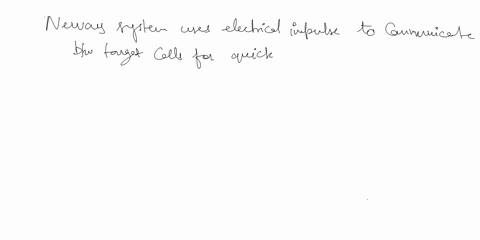 Nervous system uses electrical impulse to Communicate
b/w target cells for quick